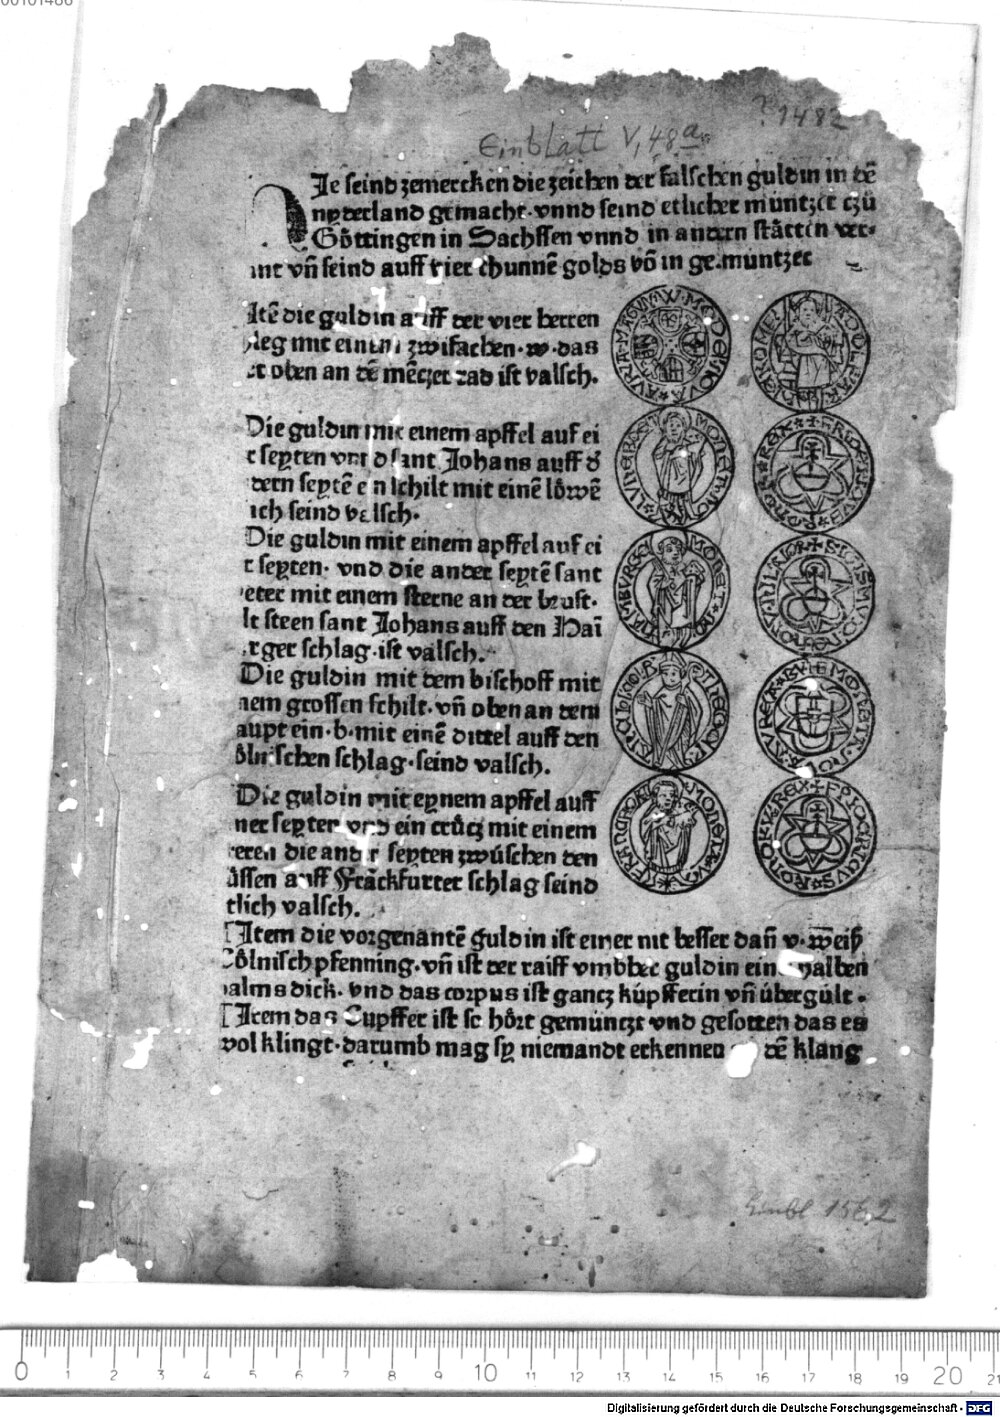 00101486
? 1482
Einblatt V, 48a
Ie seind zemercken die zeichen der falschen guldin in dē
nyderland gemacht. vnnd seind etlicher müntzer czů
Göttingen in Sachssen vnnd in andern stätten ver-
int vñ seind auff vier chunnē golds vō in ge.müntzet
Itē die guldin auff der vier herren
mit einem zwifachen .w. das
oben an dē mēczer rad ist valsch.
Die guldin mit einem apffel auf ei
seyten vnd sant Johans auff d̕
dern seytē ein schilt mit einē lôwē
ich seind valsch.
Die guldin mit einem apffel auf ei
r seyten. vnd die ander seytē sant
eter mit einem sterne an der brust.
lt steen sant Johans auff den Hai
rger schlag.ist valsch.
Die guldin mit dem bischoff mit
nem grossen schilt. vñ oben an dem
aupt ein .b. mit einē dittel auff den
ôlnischen schlag.seind valsch.
Die guldin mit eynem apffel auff
ner seyten vnd ein creücz mit einem
eren die ander seyten zwüschen den
üssen auff Frāckfurter schlag seind
tlich valsch.
Item die vorgenantē guldin ist einer nit besser dañ v. weiß
Côlnisch pfenning. vñ ist der raiff vmb der guldin ein halben
alms dick. vnd das corpus ist gancz küpfferin vñ übergült.
Item das Cupffer ist so hôrt gemüntzt vnd gesotten das es
wol klingt. darumb mag sy niemandt erkennen dē klang
Einbl 156,2
0 1 2 3 4 5 6 7 8 9 10 11 12 13 14 15 16 17 18 19 20 21
Digitalisierung gefördert durch die Deutsche Forschungsgemeinschaft - DFG